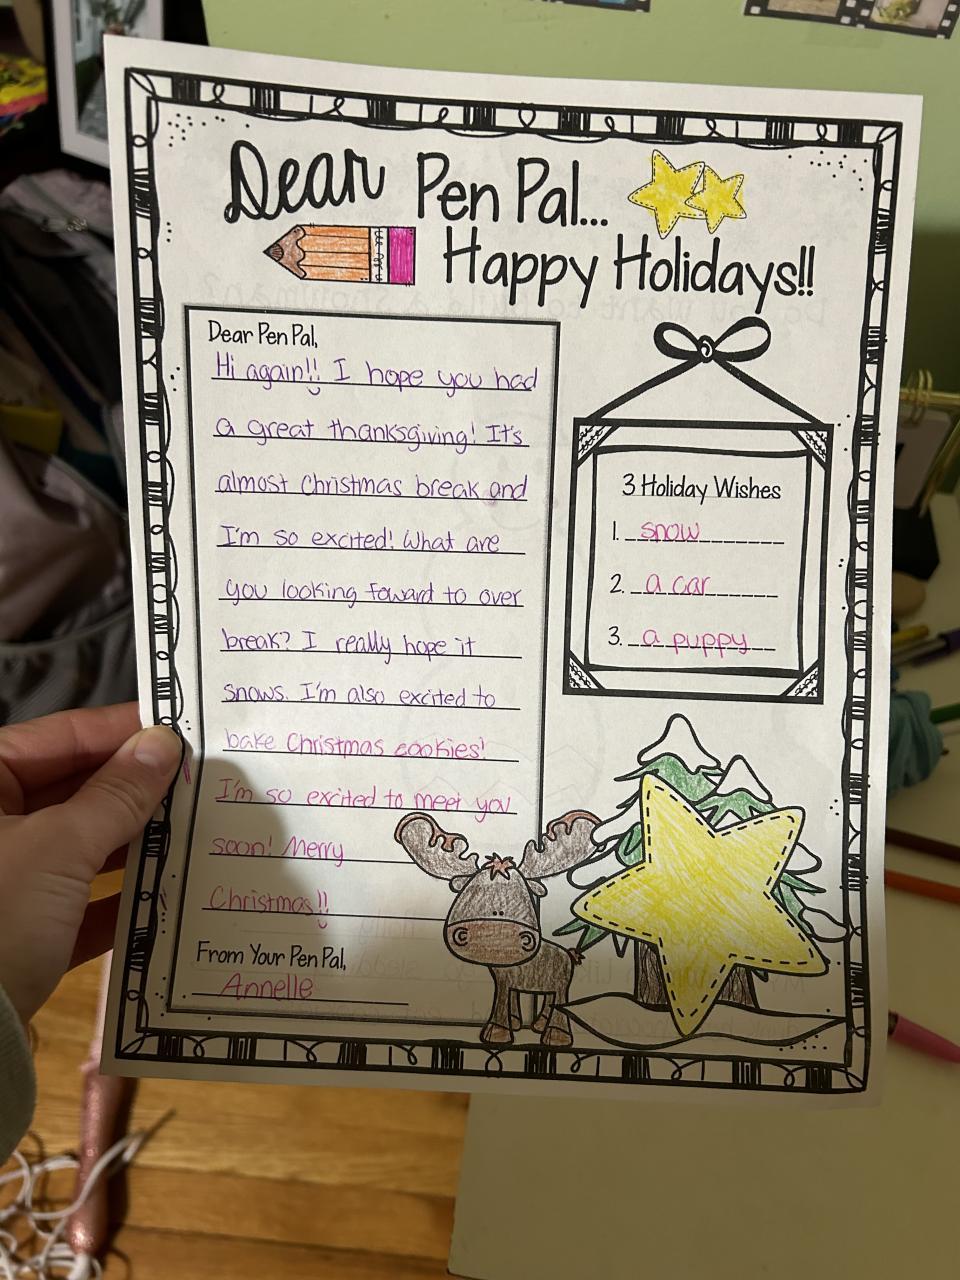 Dear Pen Pal...
Happy Holidays!!
Dear Pen Pal,
Hi again!! I hope you had
a great thanksgiving! It's
almost Christmas break and
I'm so excited! What are
you looking foward to over
break? I really hope it
snows. I'm also excited to
bake Christmas cookies!
I'm so excited to meet you
soon! Merry
Christmas!!
From Your Pen Pal,
Annelle
3 Holiday Wishes
1. snow
2. a car
3. a puppy